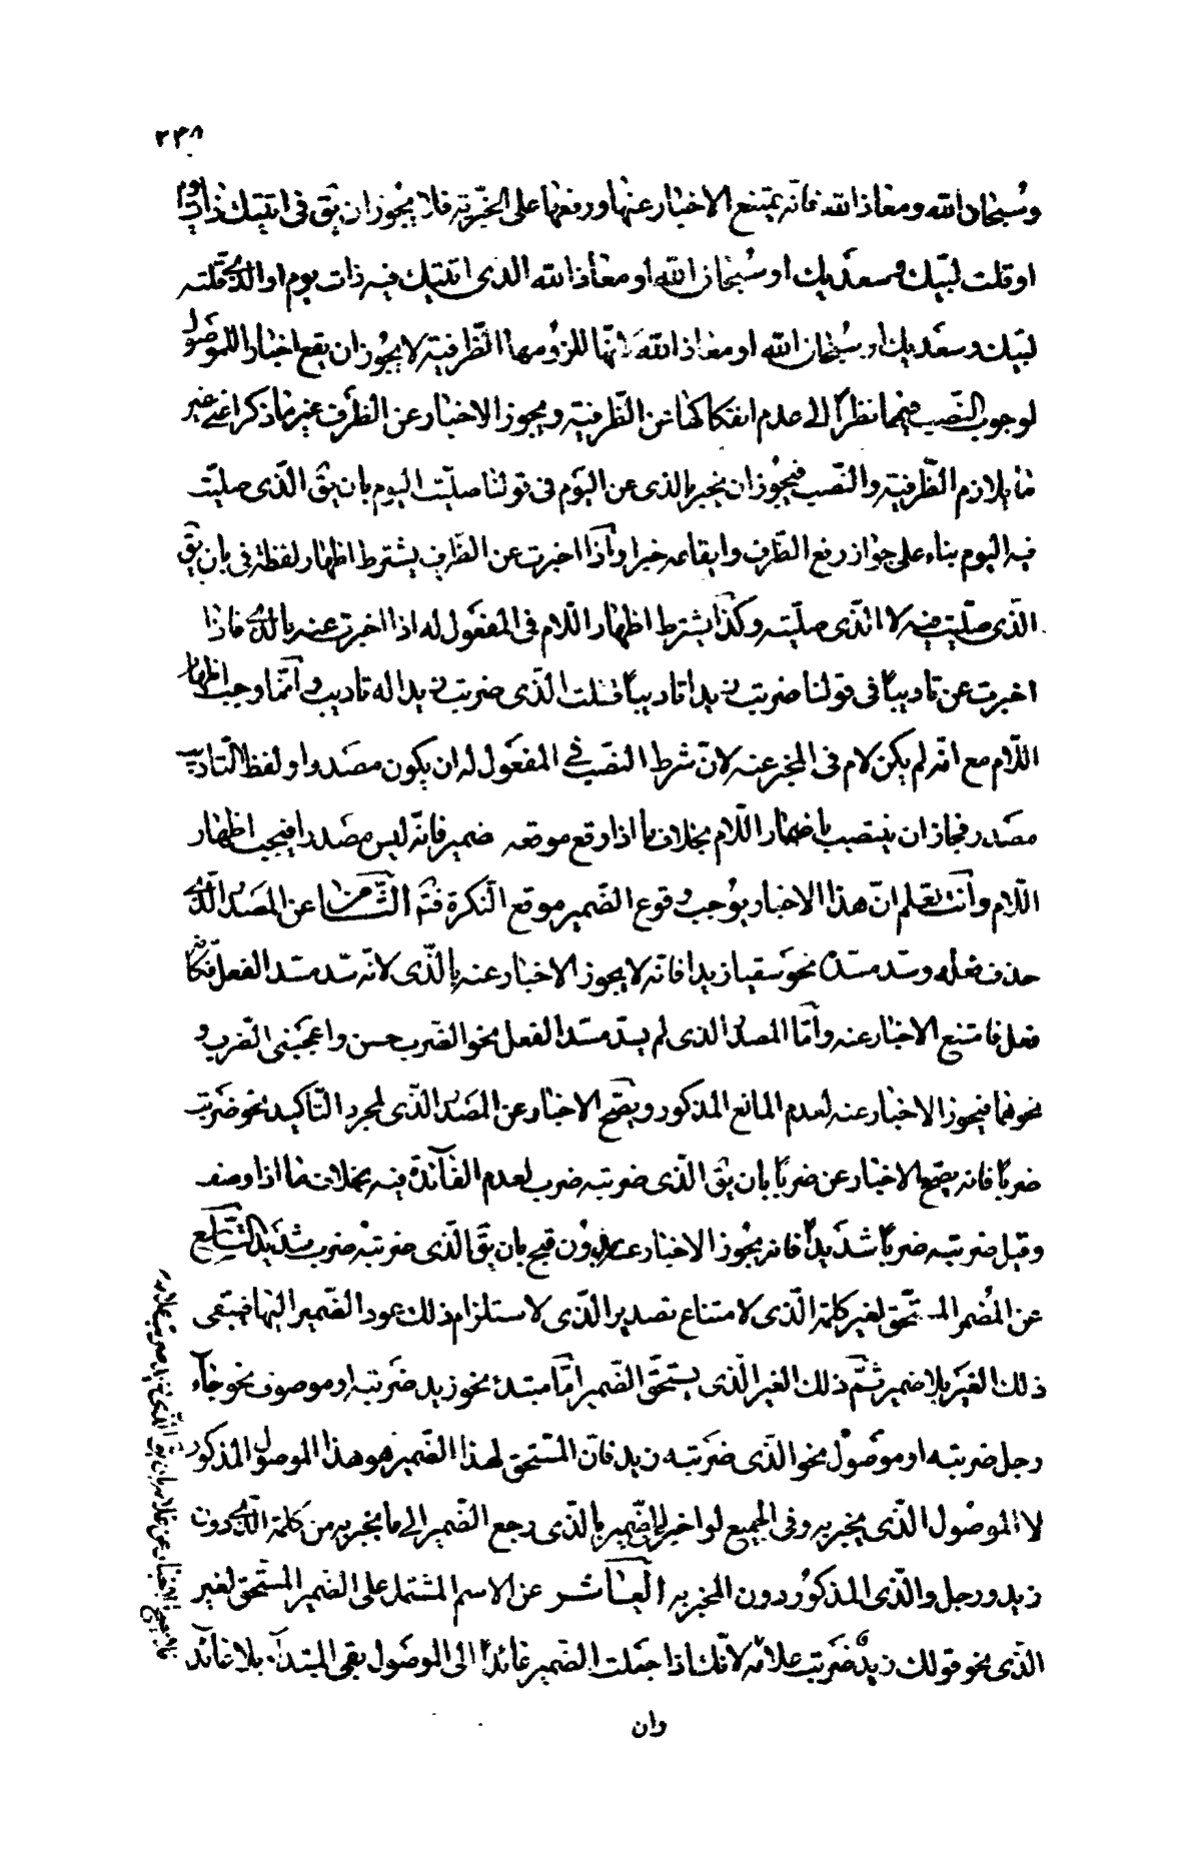 ٢٣٨
وسُبحان الله ومعاذ الله فانّه يمتنع الاخبار عنها ورفعها على الخبريّة فلا يجُوز ان يقَ فى اتيتك ذات يوم
او قلت لبّيك وسعدَيك او سُبحان الله او معاذ الله الذى اتيتك فيه ذات يوم او الذى قلته
لبّيك وسعدَيك او سُبحان الله او معاذ الله لانّها للزُومها الظّرفيّة لا يجُوز ان يقع اخبارا للموصُول
لوجوب النّصب فيهما نظراً الى عدم انفكاكها عن الظّرفية ويجوز الاخبار عن الظرف غير ما ذكر اعنى غير
ما يلازم الظّرفية والنّصب فيجُوز ان يخبر بالذى عن اليَوم فى قولنا صلّيت اليوم بان يقَ الّذى صليّت
فيه اليوم بناء على جواز رفع الظّرف وايقاعه خبرا واذا اخبرت عن الظّرف يشترط اظهار لفظة فى بان يقَ
الّذى صلّيت فيه لا الّذى صلّيته وكذا يشترط اظهار اللّام فى المفعُول له اذا اخبرت عنه بالذى فاذا
اخبرت عن تاديباً فى قولنا ضربت زيدا تاديباً قلت الّذى ضربت زيدا له تاديب وانّما وجب اظهار
اللّام مع انّه لم يكن لام فى المخبر عنه لانّ شرط النصَب فى المفعُول له ان يكون مصَدرا ولفظ التّاديب
مصَدر فجاز ان ينتصب باضمار اللّام بخلاف ما اذا وقع موقعه ضمير فانّه ليس مصَدرا فيجب اظهار
اللّام وانت تعلم انّ هذا الاخبار يوُجب وقوع الضّمير موقع النّكرة فتَم الثّامن عن المصَدر الّذى
حذف فعله وسّد مسّده نحو سَقيا زيدا فانّه لا يجوز الاخبار عنه بالّذى لانّه سّد مسّد الفعل فكانّه
فعل فامتنع الاخبار عنه وامّا المصدر الذى لم يسدّ مسّد الفعل نحو الضّرب حسن واعجَبنى الضّرب و
نحوهما فيجوز الاخبار عنه لعدم المانع المذكور ويقبح الاخبار عن المصَدر الّذى لمجرد التّاكيد نحو ضَربت
ضرباً فانه يقبح الاخبار عن ضرباً بان يقَ الّذى ضربته ضرب لعدم الفآئدة فيه بخلاف ما اذا وصف
وقيل ضربته ضرباً شدَيداً فانه يجُوز الاخبار عنه بدُون قبح بان يقَ الّذى ضربته ضرب شدَيد التّاسع
عن المُضمر المستحّق لغير كلمة الّذى لامتناع تصدير الّذى لاستلزام ذلك عود الضّمير اليها فيبقى
ذلك الغَير بلا ضمير ثمّ ذلك الغير الّذى يستحّق الضّمير امّا مبتدء نحو زيد ضَربته او موصوف نحو جآء
رجل ضربته او موصُول نحو الّذى ضرَبته زيد فانّ المسّتحق لهذا الضّمير هو هذا الموصول المذكور
لا الموصُول الّذى يخبر به وفى الجميع لو اخبر للضّمير بالّذى رجع الضّمير الى ما يخبر به من كلمة الّذى دون
زيد ورجل والّذى المذكوُر دون المخبر به العاشر عن الاسم المشتمل على الضّمير المستّحق لغير
الّذى نحو قولك زيدٌ ضَربت غلامه لانّك اذا جعَلت الضّمير عائداً الى الموصُول بقى المبتدآء بلا عآئد
وان